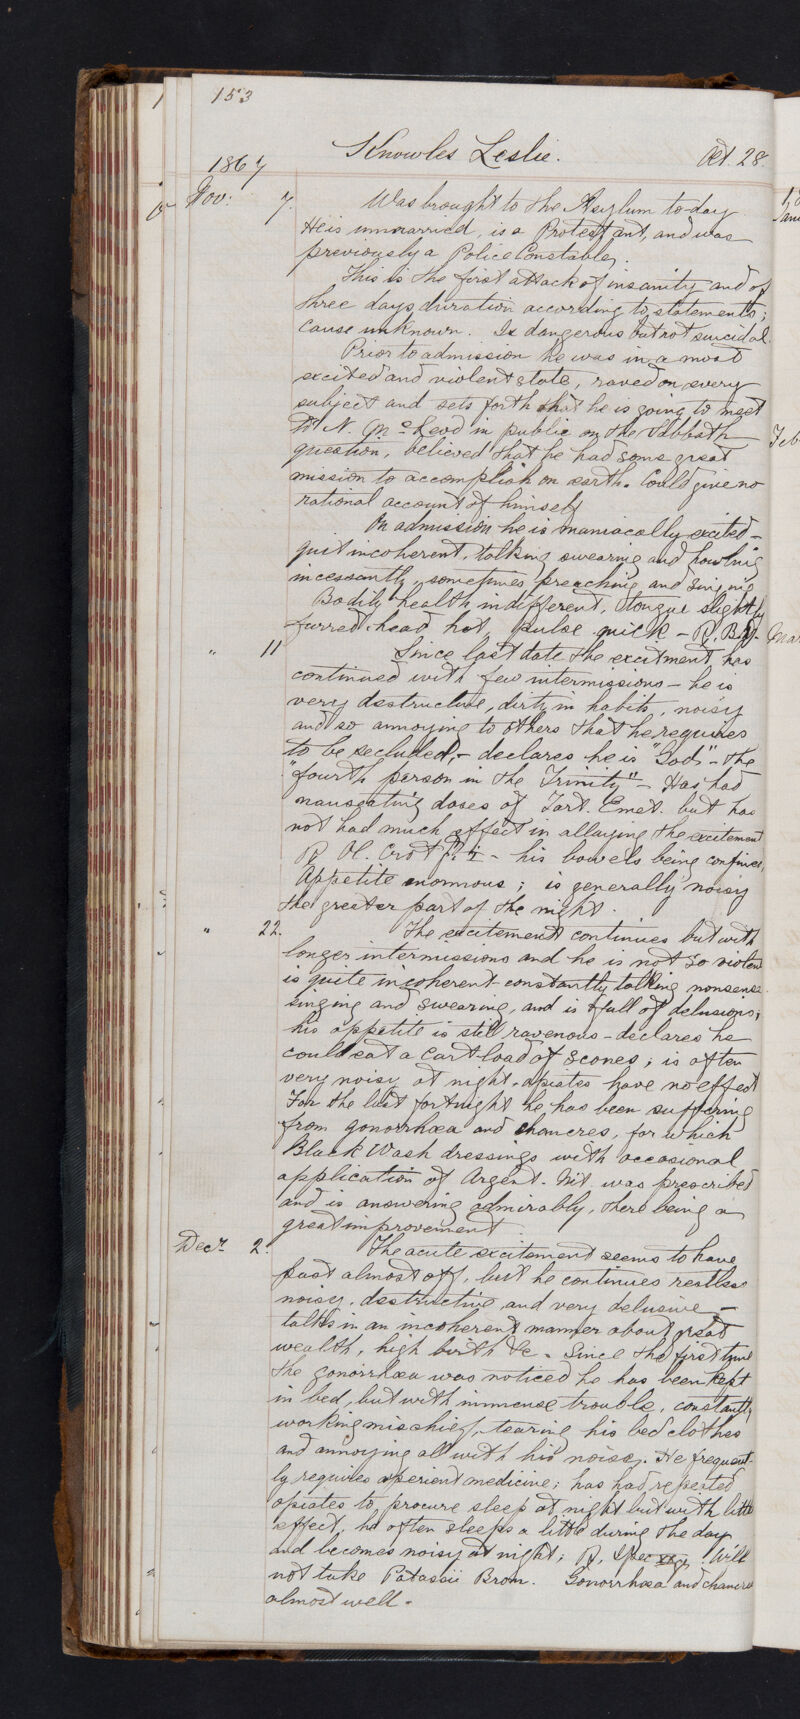 153
Knowles Leslie. Aet. 28.
1867
Nov: 7. Was brought to the Asylum to-day
He is unmarried, is a Protestant, and was
previously a Police Constable.
This is the first attack of insanity and of
three days duration according to statements;
cause unknown. Is dangerous but not suicidal.
Prior to admission he was in a most
excited and violent state, raved on every
subject and sets forth that he is going to meet
Dr N. McLeod in public on the Sabbath
question, believed that he had some great
mission to accomplish on earth. Could give no
rational account of himself
On admission he is maniacally excited -
quit incoherent, talking swearing and howling
incessantly, sometimes preaching and singing
Bodily health indifferent, tongue slightly
furred, head hot, pulse quick - R.
" 11 Since last date the excitment has
continued with few intermissions - he is
very destructive, dirty in habits, noisy
and so annoying to others that he requires
to be secluded, - declares he is "God" - the
"fourth person in the Trinity" - Has had
nauseating doses of Tart. Emet. but has
not had much effect in allaying the excitement
R Ol. Crot - his bowels being confined,
Appetite enormous; is generally noisy
the greater part of the night.
" 22. The excitement continues but with
longer intermissions and he is not so violent
is quite incoherent constantly talking nonsense
singing and swearing, and is full of delusions;
his appetite is still ravenous - declares he
could eat a Cart load of scones; is often
very noisy at night - opiates have no effect
For the last fortnight he has been suffering
from gonorrhœa and chancres, for which
Black Wash dressings with occasional
application of Argent. Nit. was prescribed
and is answering admirably, there being a
great improvement
Decr 2. The acute excitement seems to have
past almost off, but he continues restless
noisy, destructive and very delusive -
talks in an incoherent manner about great
wealth, high birth &c. Since the first time
the gonorrhœa was noticed he has been kept
in bed, but with immense trouble, constantly
working mischief, tearing his bed clothes
and annoying all with his noise. He frequent-
ly requires aperient medicine; has had repeated
opiates to procure sleep at night but with little
effect, he often sleeps a little during the day
and becomes noisy at night; R. Will
not take Potassii Brom. Gonorrhœa and chancres
almost well.
Feb
Mar